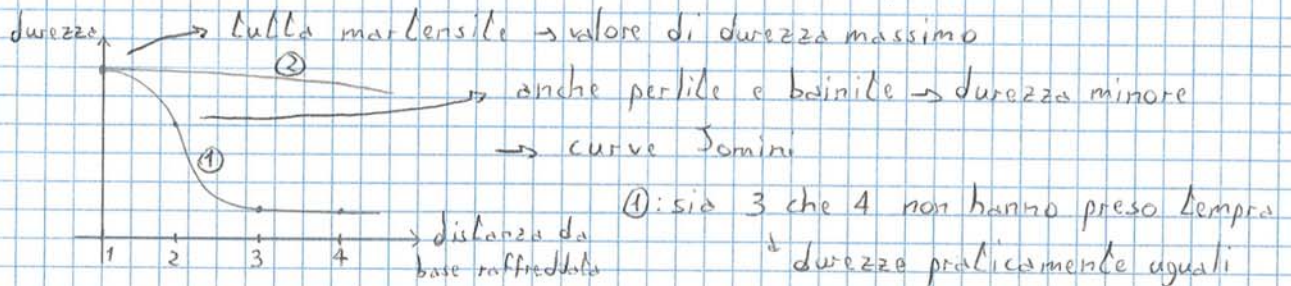 durezza → tutta martensite → valore di durezza massimo
②
→ anche perlite e bainite → durezza minore
→ curve Jomini
①
①: sia 3 che 4 non hanno preso tempra
durezze praticamente uguali
1 2 3 4
distanza da
base raffreddata